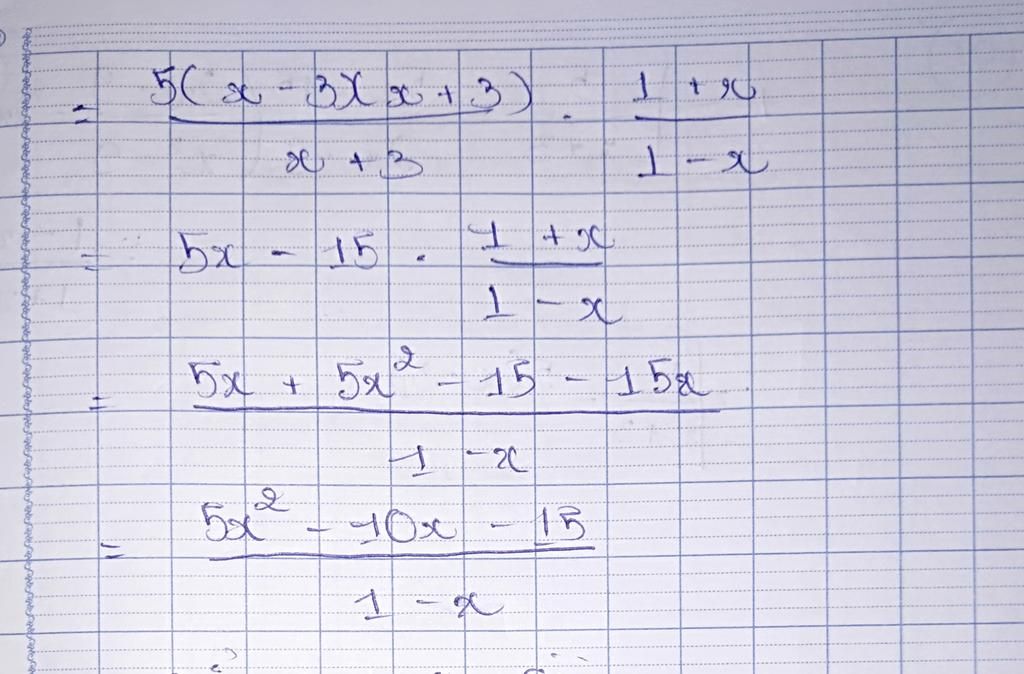 = 5(x - 3)(x + 3) / x + 3 . 1 + x / 1 - x
= 5x - 15 . 1 + x / 1 - x
= 5x + 5x² - 15 - 15x / 1 - x
= 5x² - 10x - 15 / 1 - x